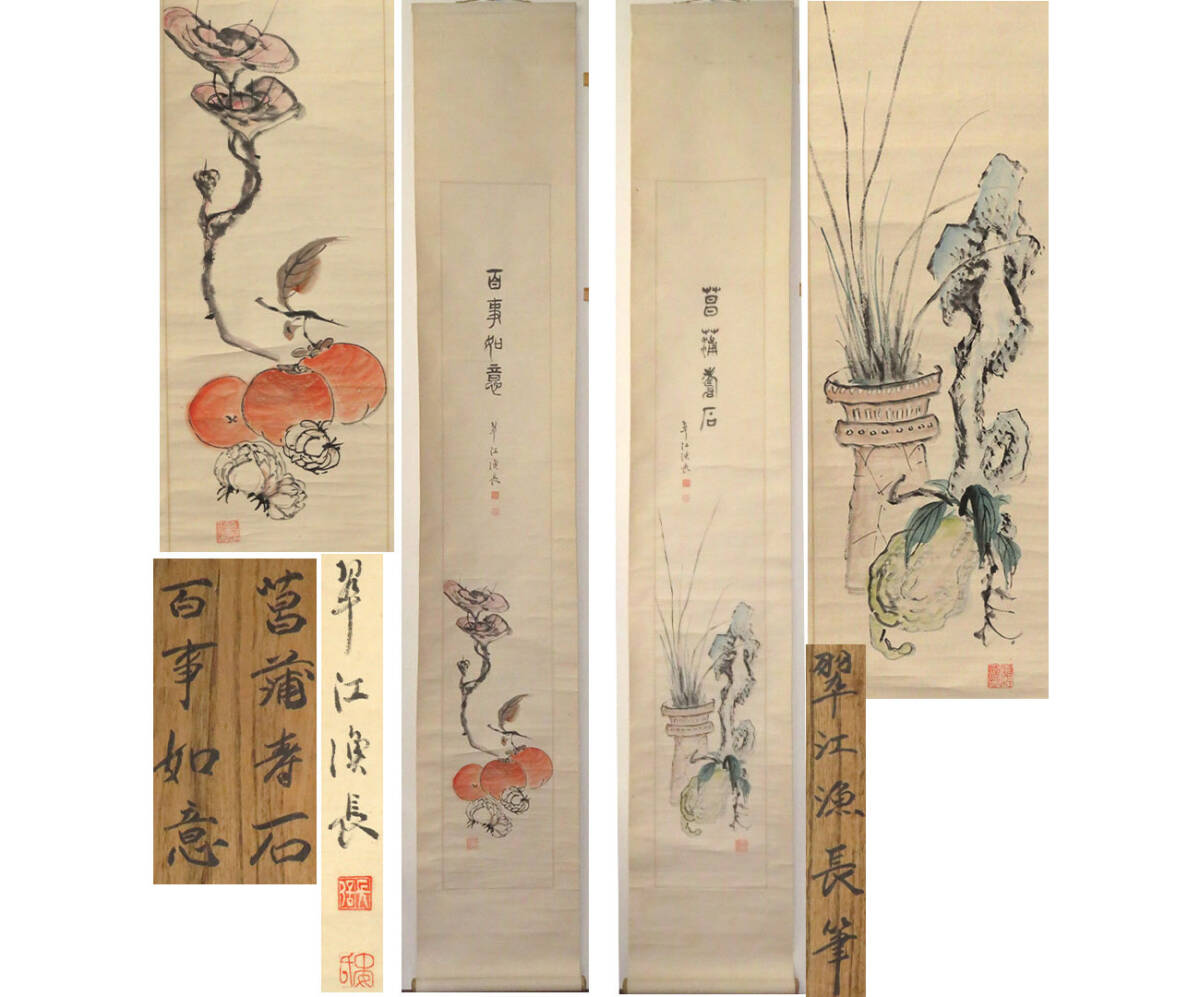 百事如意
翠江漁長
菖蒲壽石
翠江漁長
菖蒲寿石
百事如意
翠江漁長
翠江漁長筆